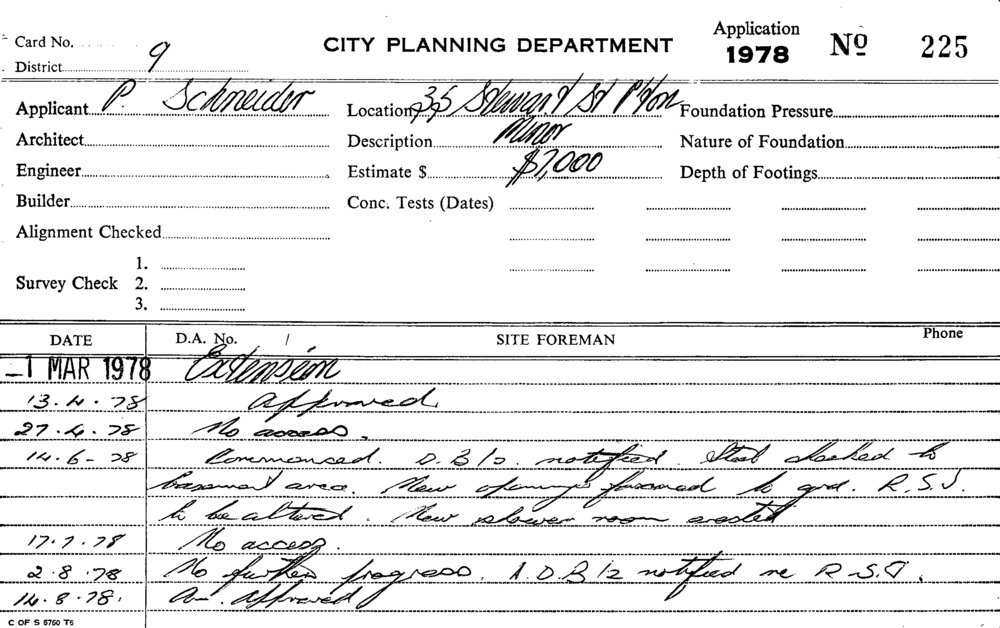 Card No. CITY PLANNING DEPARTMENT Application 1978 No 225
District 9
Applicant P. Schneider Location 35 Stewart St P'ton Foundation Pressure
Architect Description Minor Nature of Foundation
Engineer Estimate $ $7,000 Depth of Footings
Builder Conc. Tests (Dates)
Alignment Checked
1.
Survey Check 2.
3.
DATE D.A. No. / SITE FOREMAN Phone
-1 MAR 1978 Extension
13.4.78 Approved
27.4.78 No access.
14.6-78 Commenced. D.B/s. notified. Steel checked to
basement area. New openings formed to grd. R.S.J.
to be altered. New shower room erected
17.7.78 No access.
2.8.78 No further progress. A.D.B/2 notified re R-S.J.
14.8.78. approved
C OF S 5760 T6